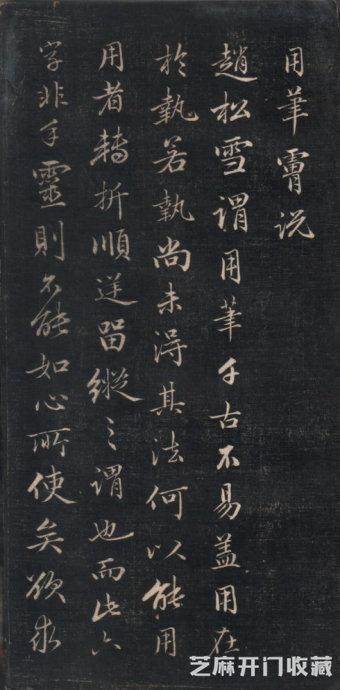 用筆说
趙松雪谓用筆千古不易盖用在
於執若執尚未得其法何以能用
用者轉折順逆畱縱之谓也而此六
字非手靈則不能如心所使矣欲求
芝麻开门收藏